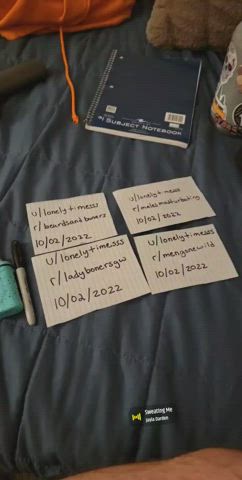 SUBJECT NOTEBOOK
u/lonelytimesss
r/beardsandboners
10/02/2022
u/lonelytimesss
r/malesmasturbating
10/02/2022
u/lonelytimesss
r/ladybonersgw
10/02/2022
u/lonelytimesss
r/mengonewild
10/02/2022
Sweating Me
Jayla Darden